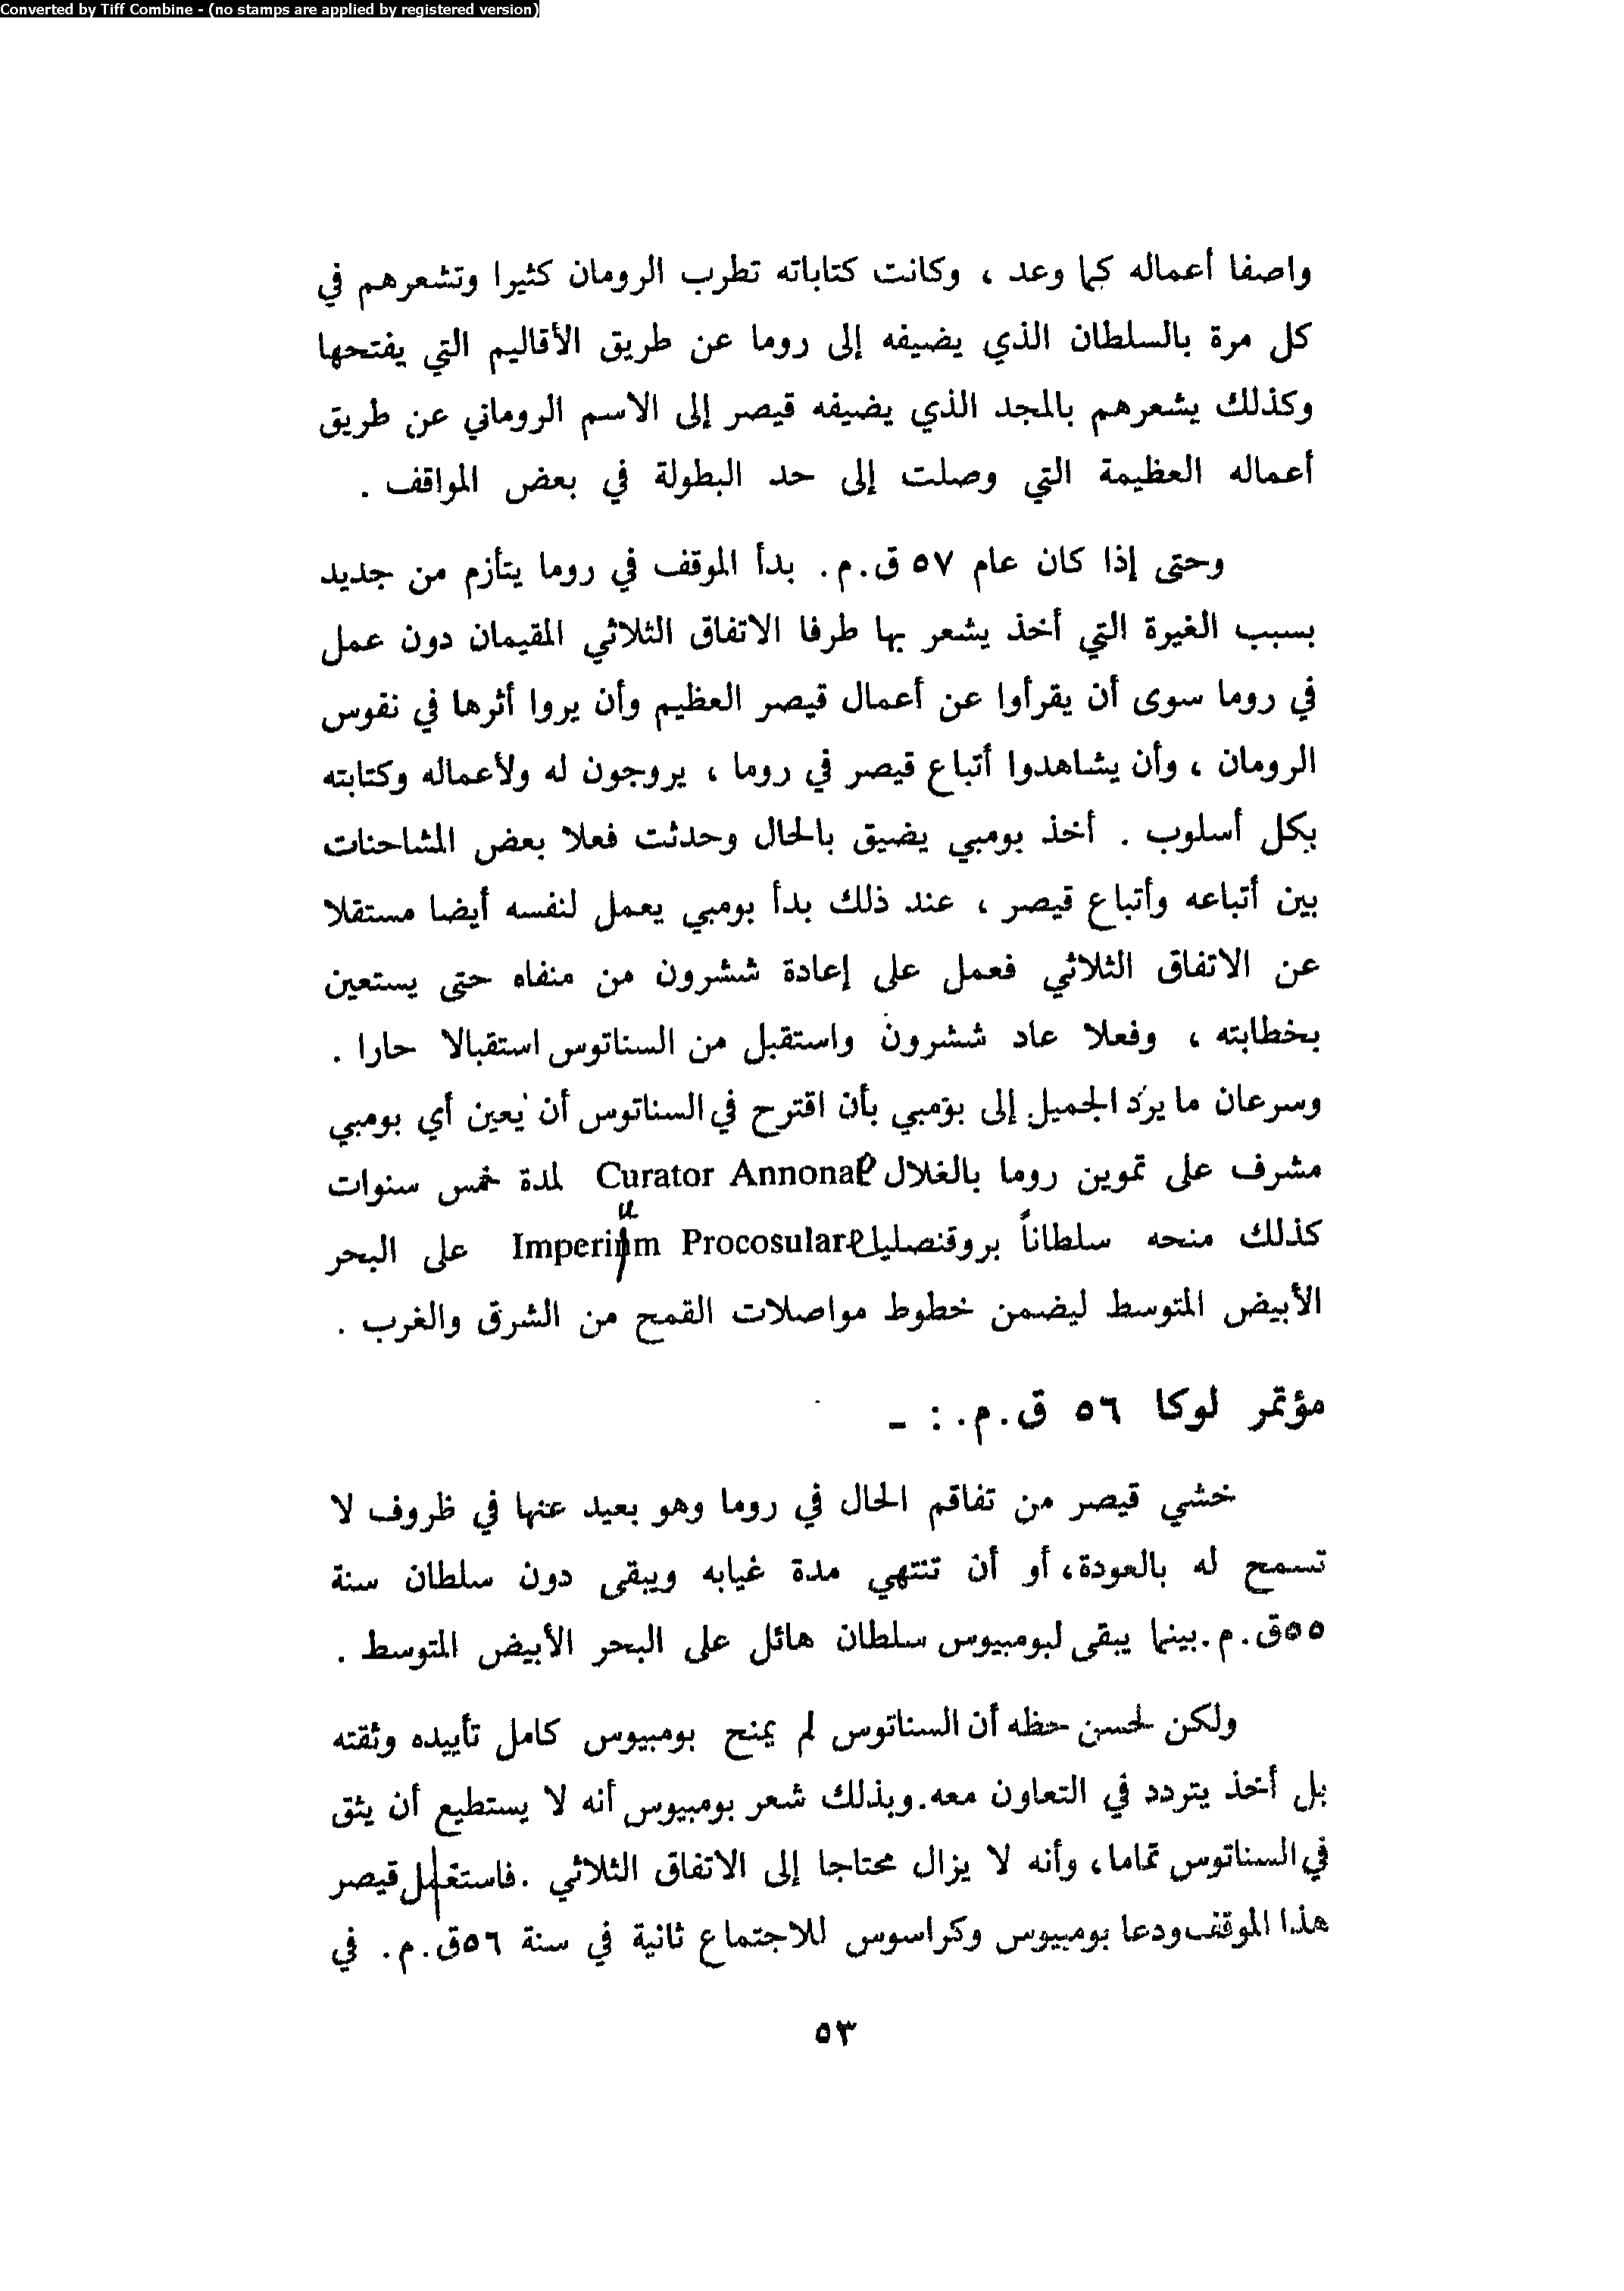 Converted by Tiff Combine - (no stamps are applied by registered version)
واصفا أعماله كما وعد ، وكانت كتاباته تطرب الرومان كثيرا وتشعرهم في
كل مرة بالسلطان الذي يضيفه إلى روما عن طريق الأقاليم التي يفتحها
وكذلك يشعرهم بالمجد الذي يضيفه قيصر إلى الاسم الروماني عن طريق
أعماله العظيمة التي وصلت إلى حد البطولة في بعض المواقف .
وحتى إذا كان عام ٥٧ ق.م. بدأ الموقف في روما يتأزم من جديد
بسبب الغيرة التي أخذ يشعر بها طرفا الاتفاق الثلاثي المقيمان دون عمل
في روما سوى أن يقرأوا عن أعمال قيصر العظيم وأن يروا أثرها في نقوس
الرومان ، وأن يشاهدوا أتباع قيصر في روما ، يروجون له ولأعماله وكتابته
بكل أسلوب . أخذ بومبي يضيق بالحال وحدثت فعلا بعض المشاحنات
بين أتباعه وأتباع قيصر ، عند ذلك بدأ بومبي يعمل لنفسه أيضا مستقلا
عن الاتفاق الثلاثي فعمل على إعادة ششرون من منفاه حتى يستعين
بخطابته ، وفعلا عاد ششرون واستقبل من السناتوس استقبالا حارا .
وسرعان ما يرد الجميل إلى بومبي بأن اقترح في السناتوس أن يعين أي بومبي
مشرف على تموين روما بالغلال Curator Annonae لمدة خمس سنوات
كذلك منحه سلطاناً بروقنصليا Imperium Procosulare على البحر
الأبيض المتوسط ليضمن خطوط مواصلات القمح من الشرق والغرب .
مؤتمر لوكا ٥٦ ق.م. : -
خشي قيصر من تفاقم الحال في روما وهو بعيد عنها في ظروف لا
تسمح له بالعودة، أو أن تنتهي مدة غيابه ويبقى دون سلطان سنة
٥٥ق.م.بينما يبقى لبومبيوس سلطان هائل على البحر الأبيض المتوسط .
ولكن لحسن حظه أن السناتوس لم يمنح بومبيوس كامل تأييده وثقته
بل أخذ يتردد في التعاون معه.وبذلك شعر بومبيوس أنه لا يستطيع أن يثق
في السناتوس تماما، وأنه لا يزال محتاجا إلى الاتفاق الثلاثي .فاستغل قيصر
هذا الموقف ودعا بومبيوس وكراسوس للاجتماع ثانية في سنة ٥٦ق.م. في
٥٣